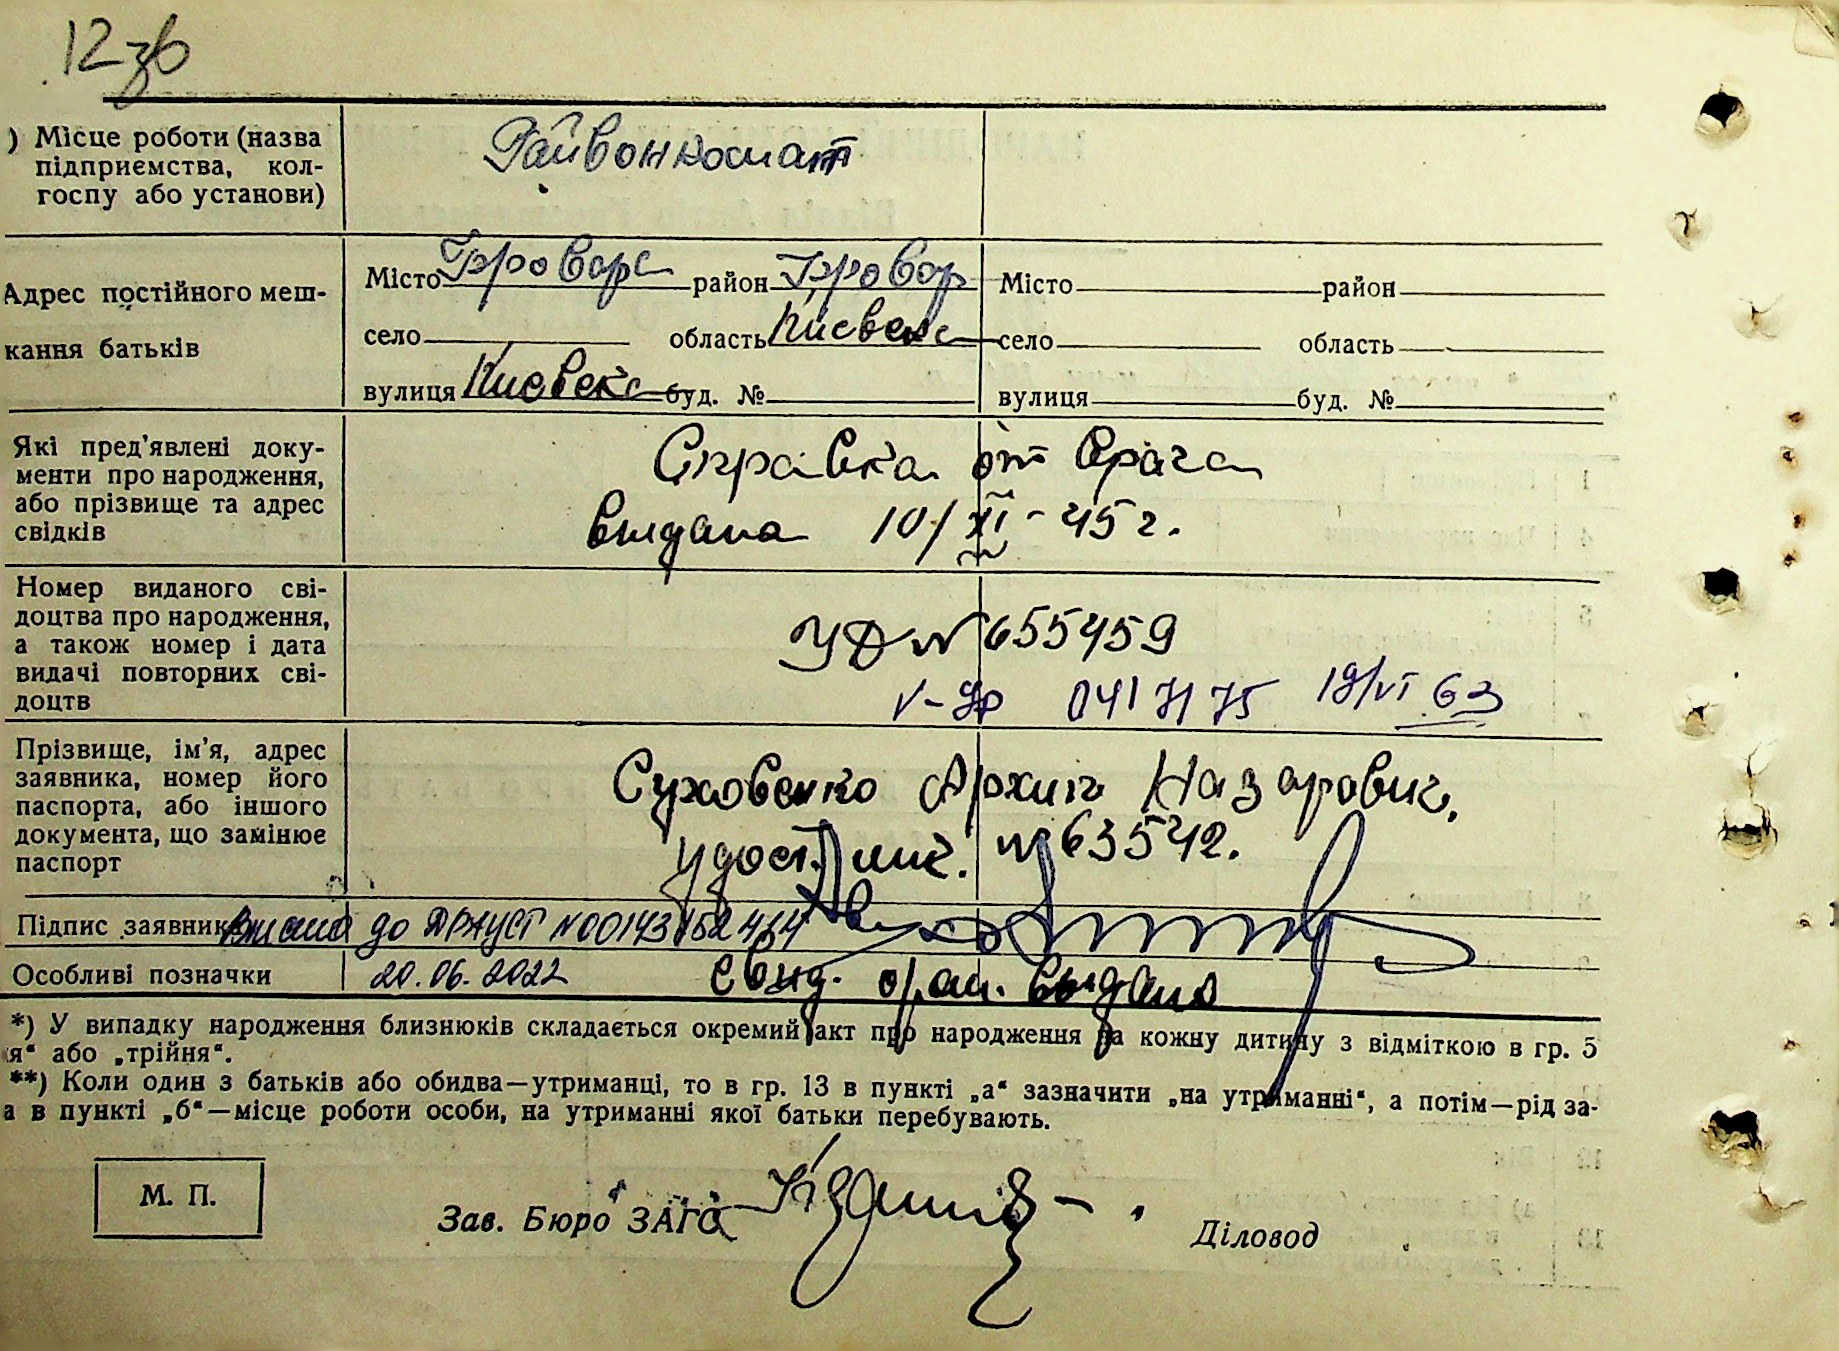 12 зв
) Місце роботи (назва
підприємства, кол-
госпу або установи)
Райвонкомат
Адрес постійного меш-
кання батьків
Місто Бровари район Бровар
село область Киевск
вулиця Киевска буд. №
Місто район
село область
вулиця буд. №
Які пред’явлені доку-
менти про народження,
або прізвище та адрес
свідків
Справка от врача
выдана 10/XI-45 г.
Номер виданого сві-
доцтва про народження,
а також номер і дата
видачі повторних сві-
доцтв
УД № 655459
0417175 19/VI 63
Прізвище, ім’я, адрес
заявника, номер його
паспорта, або іншого
документа, що замінює
паспорт
Суховенко Архип Назарович,
удост. лич. № 63542.
Підпис заявника
Внесено до ДРАЦСГ N00143152414
Особливі позначки
20.06.2022
свид. о рож. выдано
*) У випадку народження близнюків складається окремий акт про народження на кожну дитину з відміткою в гр. 5
я“ або „трійня“.
**) Коли один з батьків або обидва—утриманці, то в гр. 13 в пункті „а“ зазначити „на утриманні“, а потім—рід за-
а в пункті „б“—місце роботи особи, на утриманні якої батьки перебувають.
М. П.
Зав. Бюро ЗАГС
Діловод